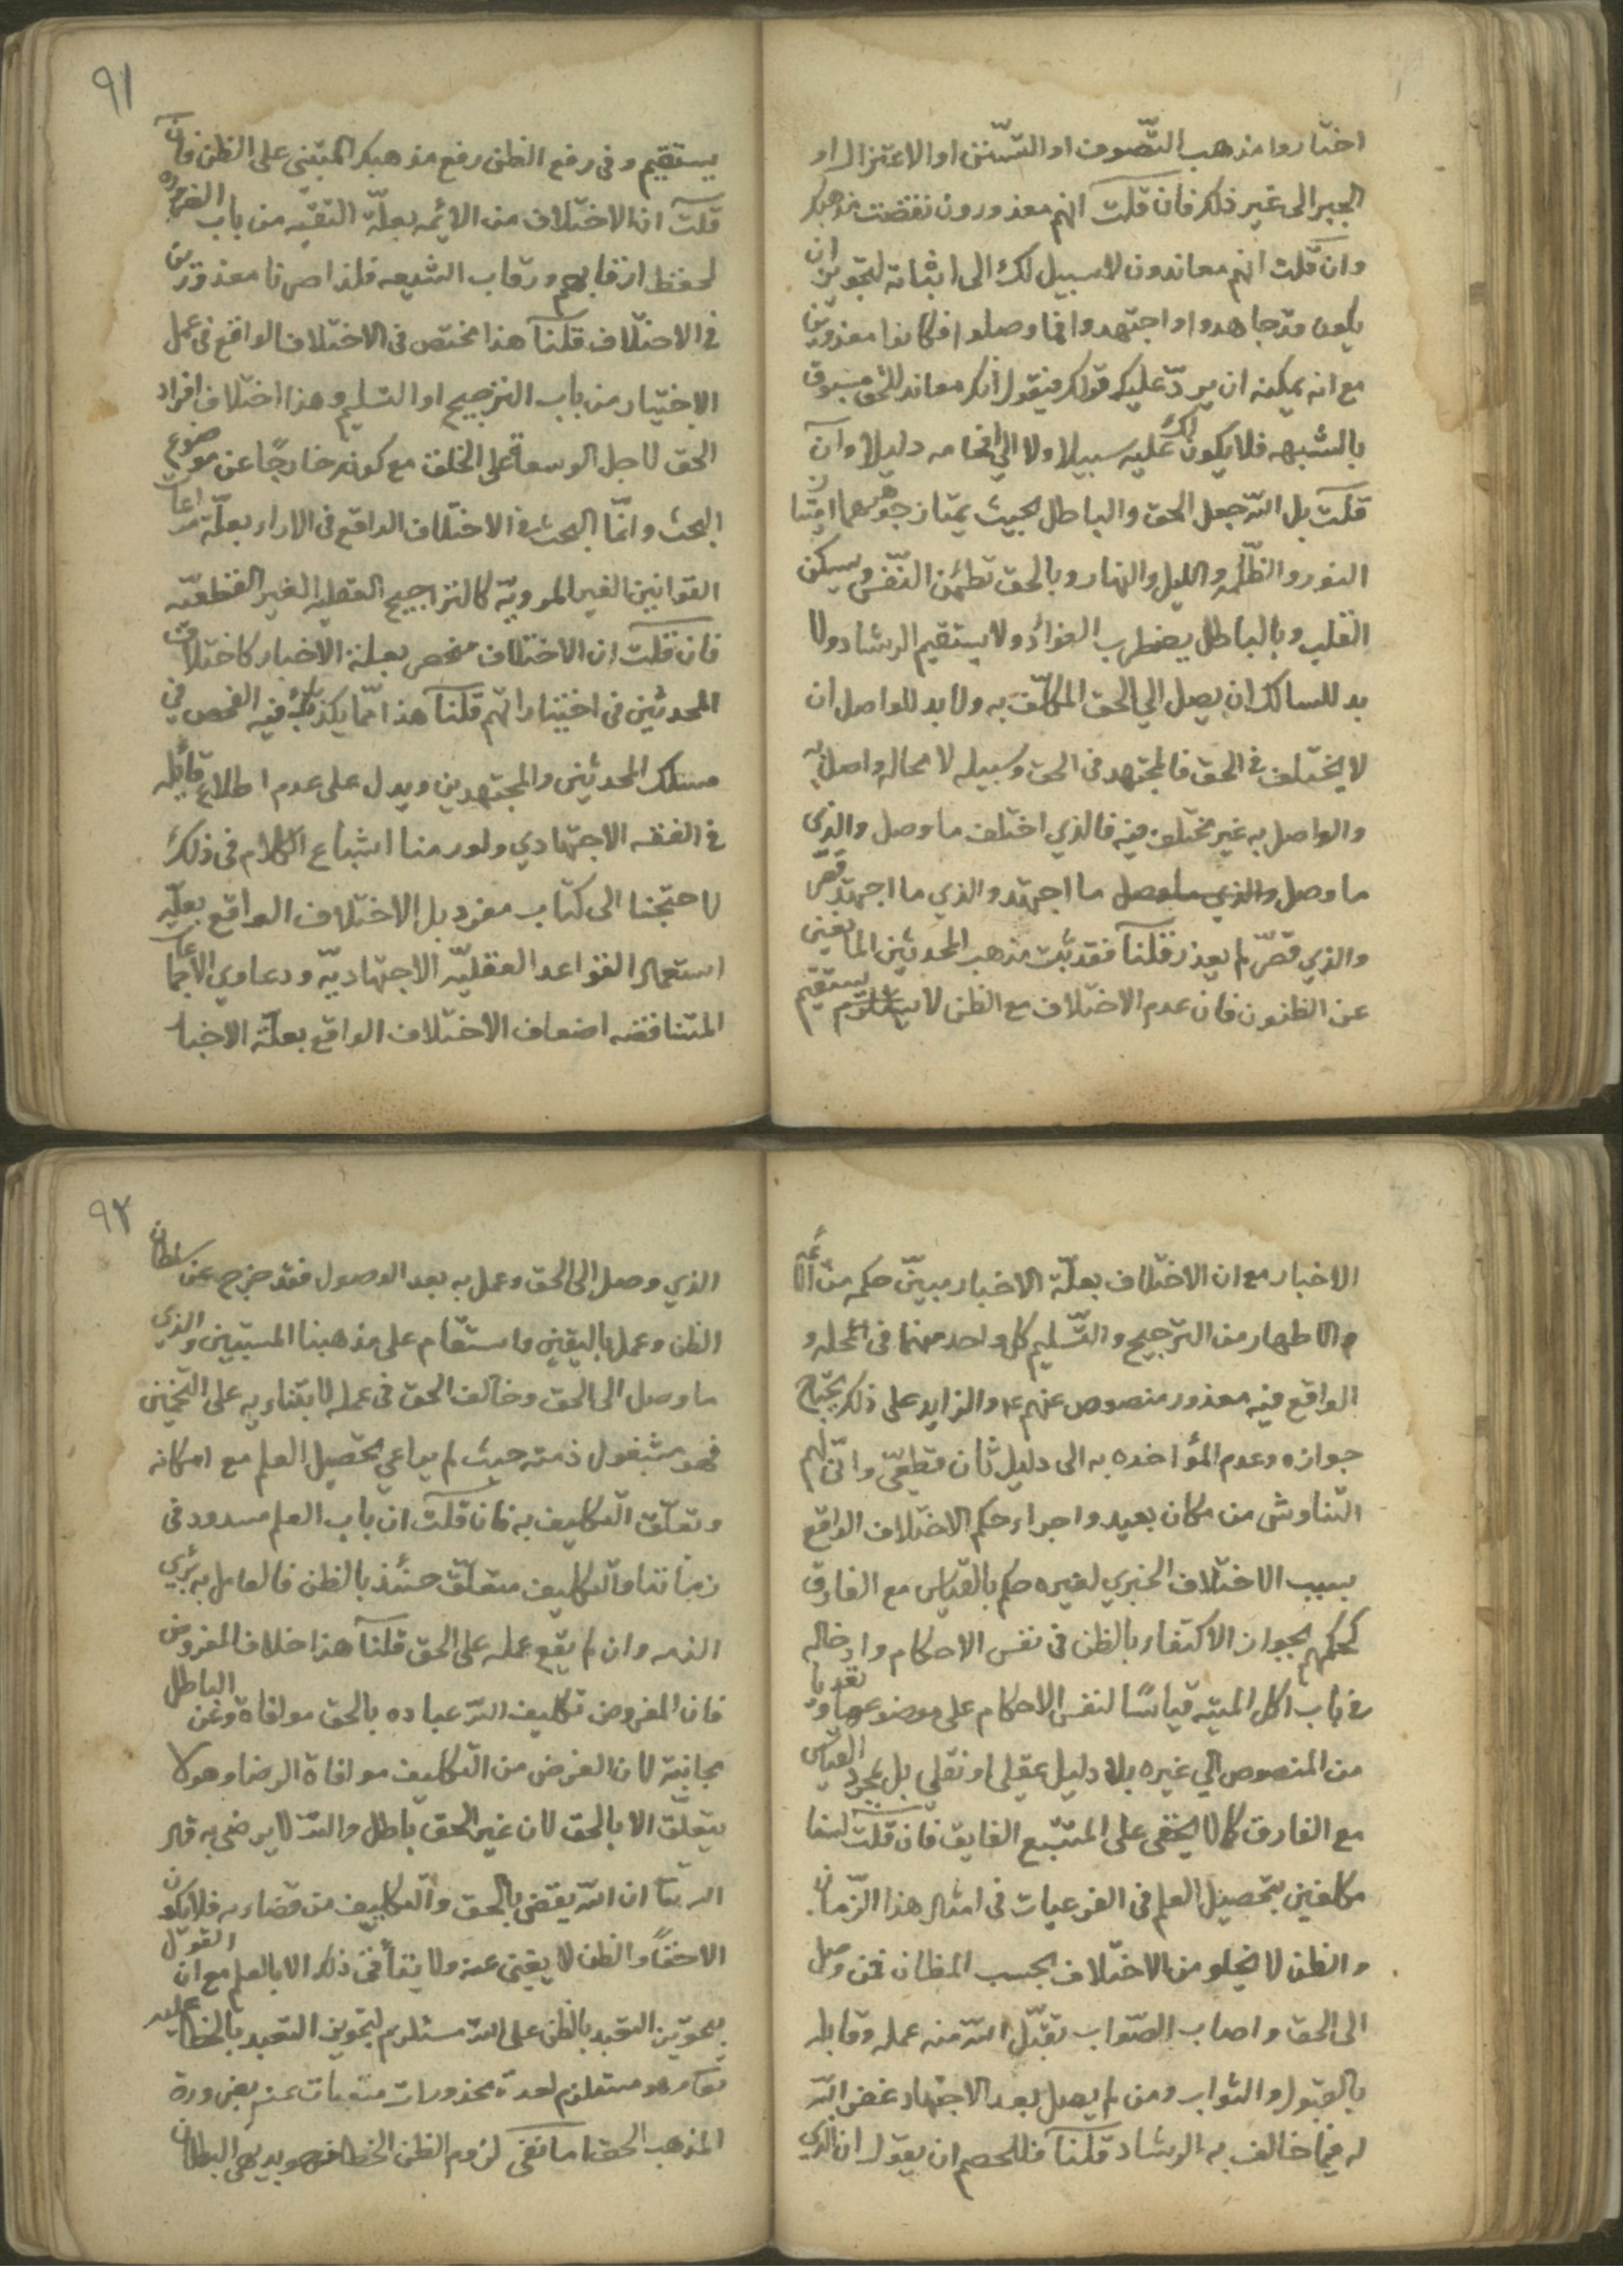 اختاروا مذهب التّصوف او التسّنن او الاعتزال او
الجبر الى غير ذلك فان قلت انهم معذورون نقضت مذهبكم
وان قلت انهم معاندون لا سبيل لك الى اثباته لتجويز ان
يكون قد جاهدوا واجتهدوا فما وصلوا فكانوا معذورين
مع انه يمكنه ان يردّ عليك قولك فيقول انكم معاند للحق مسبوق
بالشبهه فلا يكون لك عليه سبيلا ولا الى افحامه دليلا وان
قلت بل الله جعل الحق والباطل بحيث يمتاز جوهرهما امتياز
النور والظّلمه والليل والنهار وبالحق تطمئن النّفس ويسكن
القلب وبالباطل يضطرب الفؤاد ولا يستقيم الرشاد ولا
بد للسالك ان يصل الي الحق المكلّف به ولا بد للواصل ان
لا يختلف في الحق فالمجتهد في الحق وسبيله لا محاله واصل به
والواصل به غير مختلف فيه فالذي اختلف ما وصل والذي
ما وصل والذي ما وصل ما اجتهد والذي ما اجتهد قصّر
والذي قصّر لم يعذر قلنا فقد ثبت مذهب المحدثين المانعين
عن الظنون فان عدم الاختلاف مع الظن لا يستلزم يستقيم
٩١
يستقيم وفى رفع الظن رفع مذهبكم المبتنى على الظن فان
قلت ان الاختلاف من الائمه بعلّة التقيه من باب الضروره
لحفظ ارقابهم ورقاب الشيعه فلذا صرنا معذورين
في الاختلاف قلنا هذا مختص فى الاختلاف الواقع فى عمل
الاختيار من باب الترجيح او التسليم وهذا اختلاف افراد
الحق لاجل الوسعة على الخلق مع كونه خارجًا عن موضوع
البحث وانمّا البحث في الاختلاف الواقع فى الاراء بعلّة مراعات
القوانين الغير المرويّة كالتراجيح العقليه الغير القطعيّه
فان قلت ان الاختلاف منحصر بعلة الاخبار كاختلاف
المحدثين فى اختياراتهم قلنا هذا ممّا يكذبك فيه الفحص في
مسلك المحدثين والمجتهدين ويدل على عدم اطلاع قائله
في الفقه الاجتهادي ولو رمنا اشباع الكلام فى ذلك
لاحتجنا الى كتاب مفرد بل الاختلاف الواقع بعلّة
استعمال القواعد العقليّه الاجتهاديّه ودعاوي الاجماعات
المتناقضه اضعاف الاختلاف الواقع بعلّة الاخبار
الاخبار مع ان الاختلاف بعلّة الاخبار مبيّن حكمه من الائمّه
الاطهار من الترجيح والتّسليم كل واحد منهما فى محله و
الواقع فيه معذور منصوص عنهم ع والزايد على ذلك يحتاج
جوازه وعدم المؤاخده به الى دليل ثان قطعّي وانّى لهم
التناوش من مكان بعيد واجراء حكم الاختلاف الواقع
بسبب الاختلاف الخبري لغيره حكم بالقياس مع الفارق
كحكمهم بجواز الاكتفاء بالظن فى نفس الاحكام وادخاله
في باب اكل الميته قياسًا لنفس الاحكام على موضوعها وتعديا
من المنصوص الي غيره بلا دليل عقلي او نقلي بل بمجرد القياس
مع الفارق كما لا يخفى على المتتبع الفايق فان قلت لسنا
مكلفين بتحصيل العلم فى الفرعيات فى امثال هذا الزّمان
والظن لا يخلو من الاختلاف بحسب المظان فمن وصل
الى الحق واصاب الصّواب تقبّل الله منه عمله وقابله
بالقبول والثواب ومن لم يصل بعد الاجتهاد غفر الله
له فيما خالف به الرشاد قلنا فللخصم ان يقول ان الذي
٩٢
الذي وصل الى الحق وعمل به بعد الوصول فقد خرج عن سلطان
الظن وعمل باليقين واستقام على مذهبنا المستبين والذي
ما وصل الى الحق وخالف الحق فى عمله لابتنائه على التخمين
فهو مشغول ذمته حيث لم يراعي تحصيل العلم مع امكانه
وتعلّق التكليف به فان قلت ان باب العلم مسدود فى
زماننا فالتكليف متعلّق حينئذ بالظن فالعامل به بريّ
الذمه وان لم يقع عمله على الحق قلنا هذا خلاف المفروض
فان المفروض تكليف الله عباده بالحق موافاة وعن الباطل
مجانبة لان الغرض من التكليف موافاة الرضا وهو لا
يتعلّق الا بالحق لان غير الحق باطل والله لا يرضى به قال
الله تعا ان الله يقضى بالحق والتكليف من قضاءه فلا يكون
الا حقاً والظن لا يغنى عنه ولا يتأتى ذلك الا بالعلم مع ان القول
بتجويز التعبد بالظن على الله مستلزم لتجويز التعبد بالخطا عليه
تعا وهو مستلزم لعدة محذورات منفيات عنه بضرورة
المذهب الحق اما نفى لزوم الظن الخطا فهو بديهى البطلان